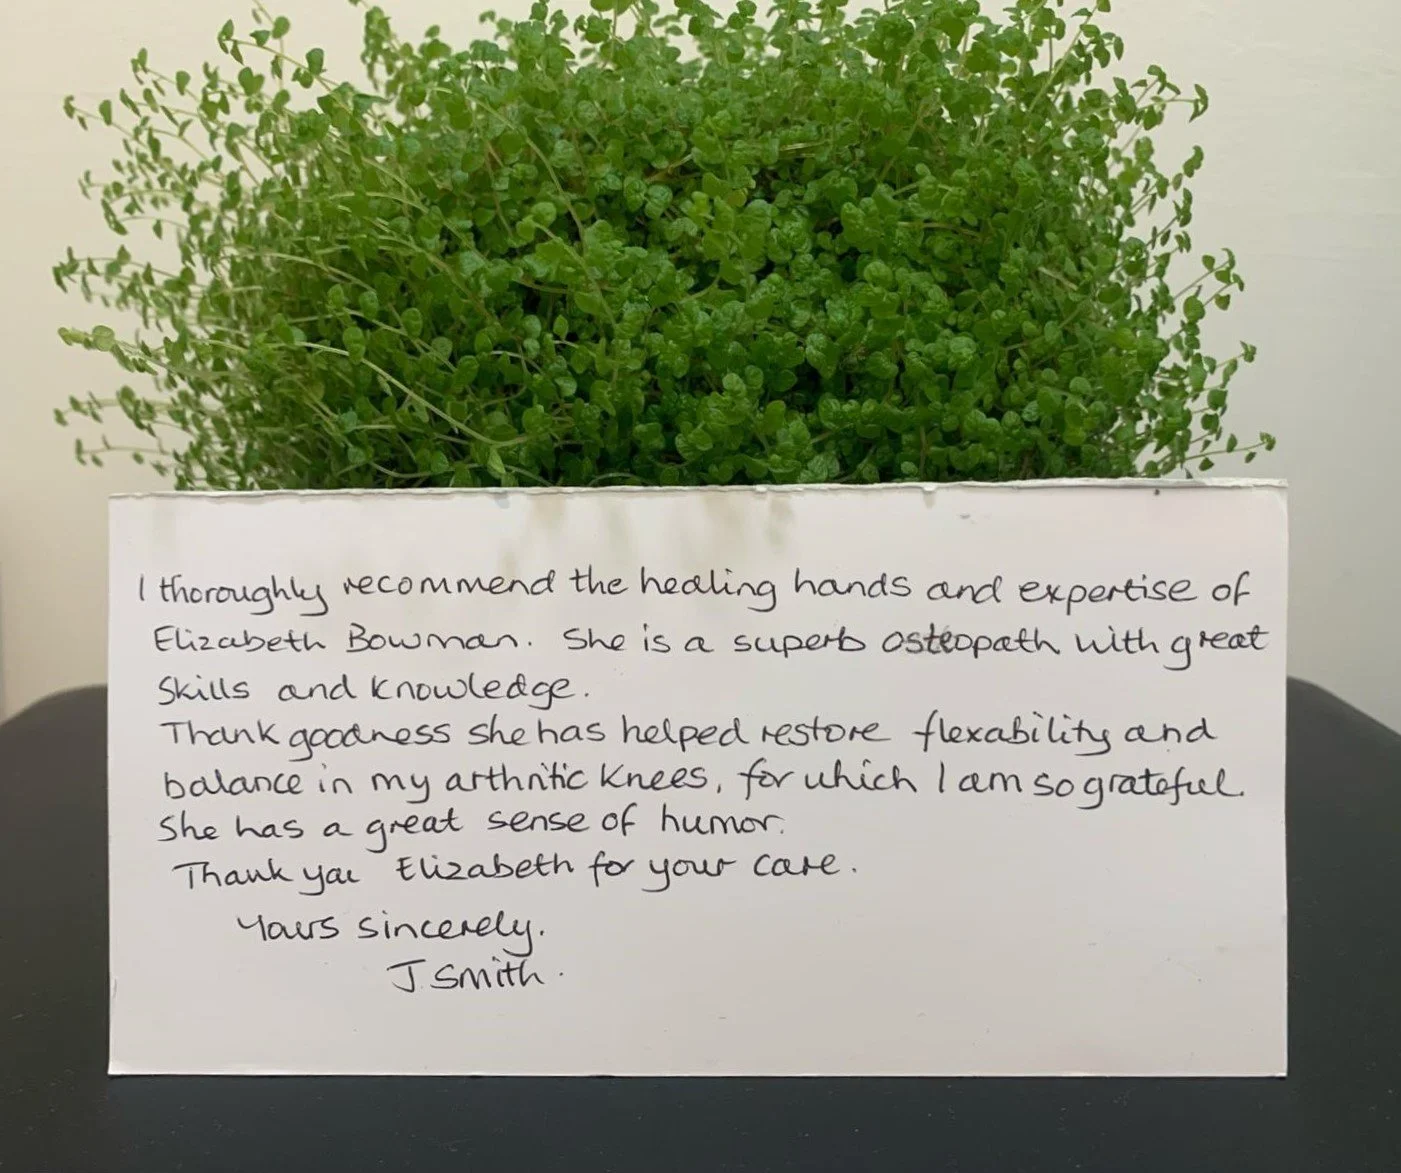 I thoroughly recommend the healing hands and expertise of
Elizabeth Bowman. She is a superb osteopath with great
skills and knowledge.
Thank goodness she has helped restore flexability and
balance in my arthritic knees, for which I am so grateful.
She has a great sense of humor.
Thank you Elizabeth for your care.
Yours sincerely.
J. Smith.